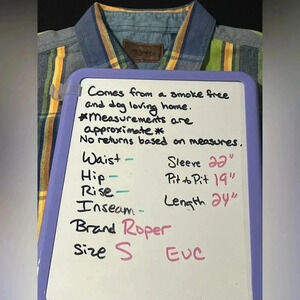 Comes from a smoke free
and dog loving home.
*Measurements are
approximate*
No returns based on measures.
Waist -
Hip -
Rise -
Inseam -
Sleeve 22"
Pit to Pit 19"
Length 24"
Brand Roper
Size S EUC